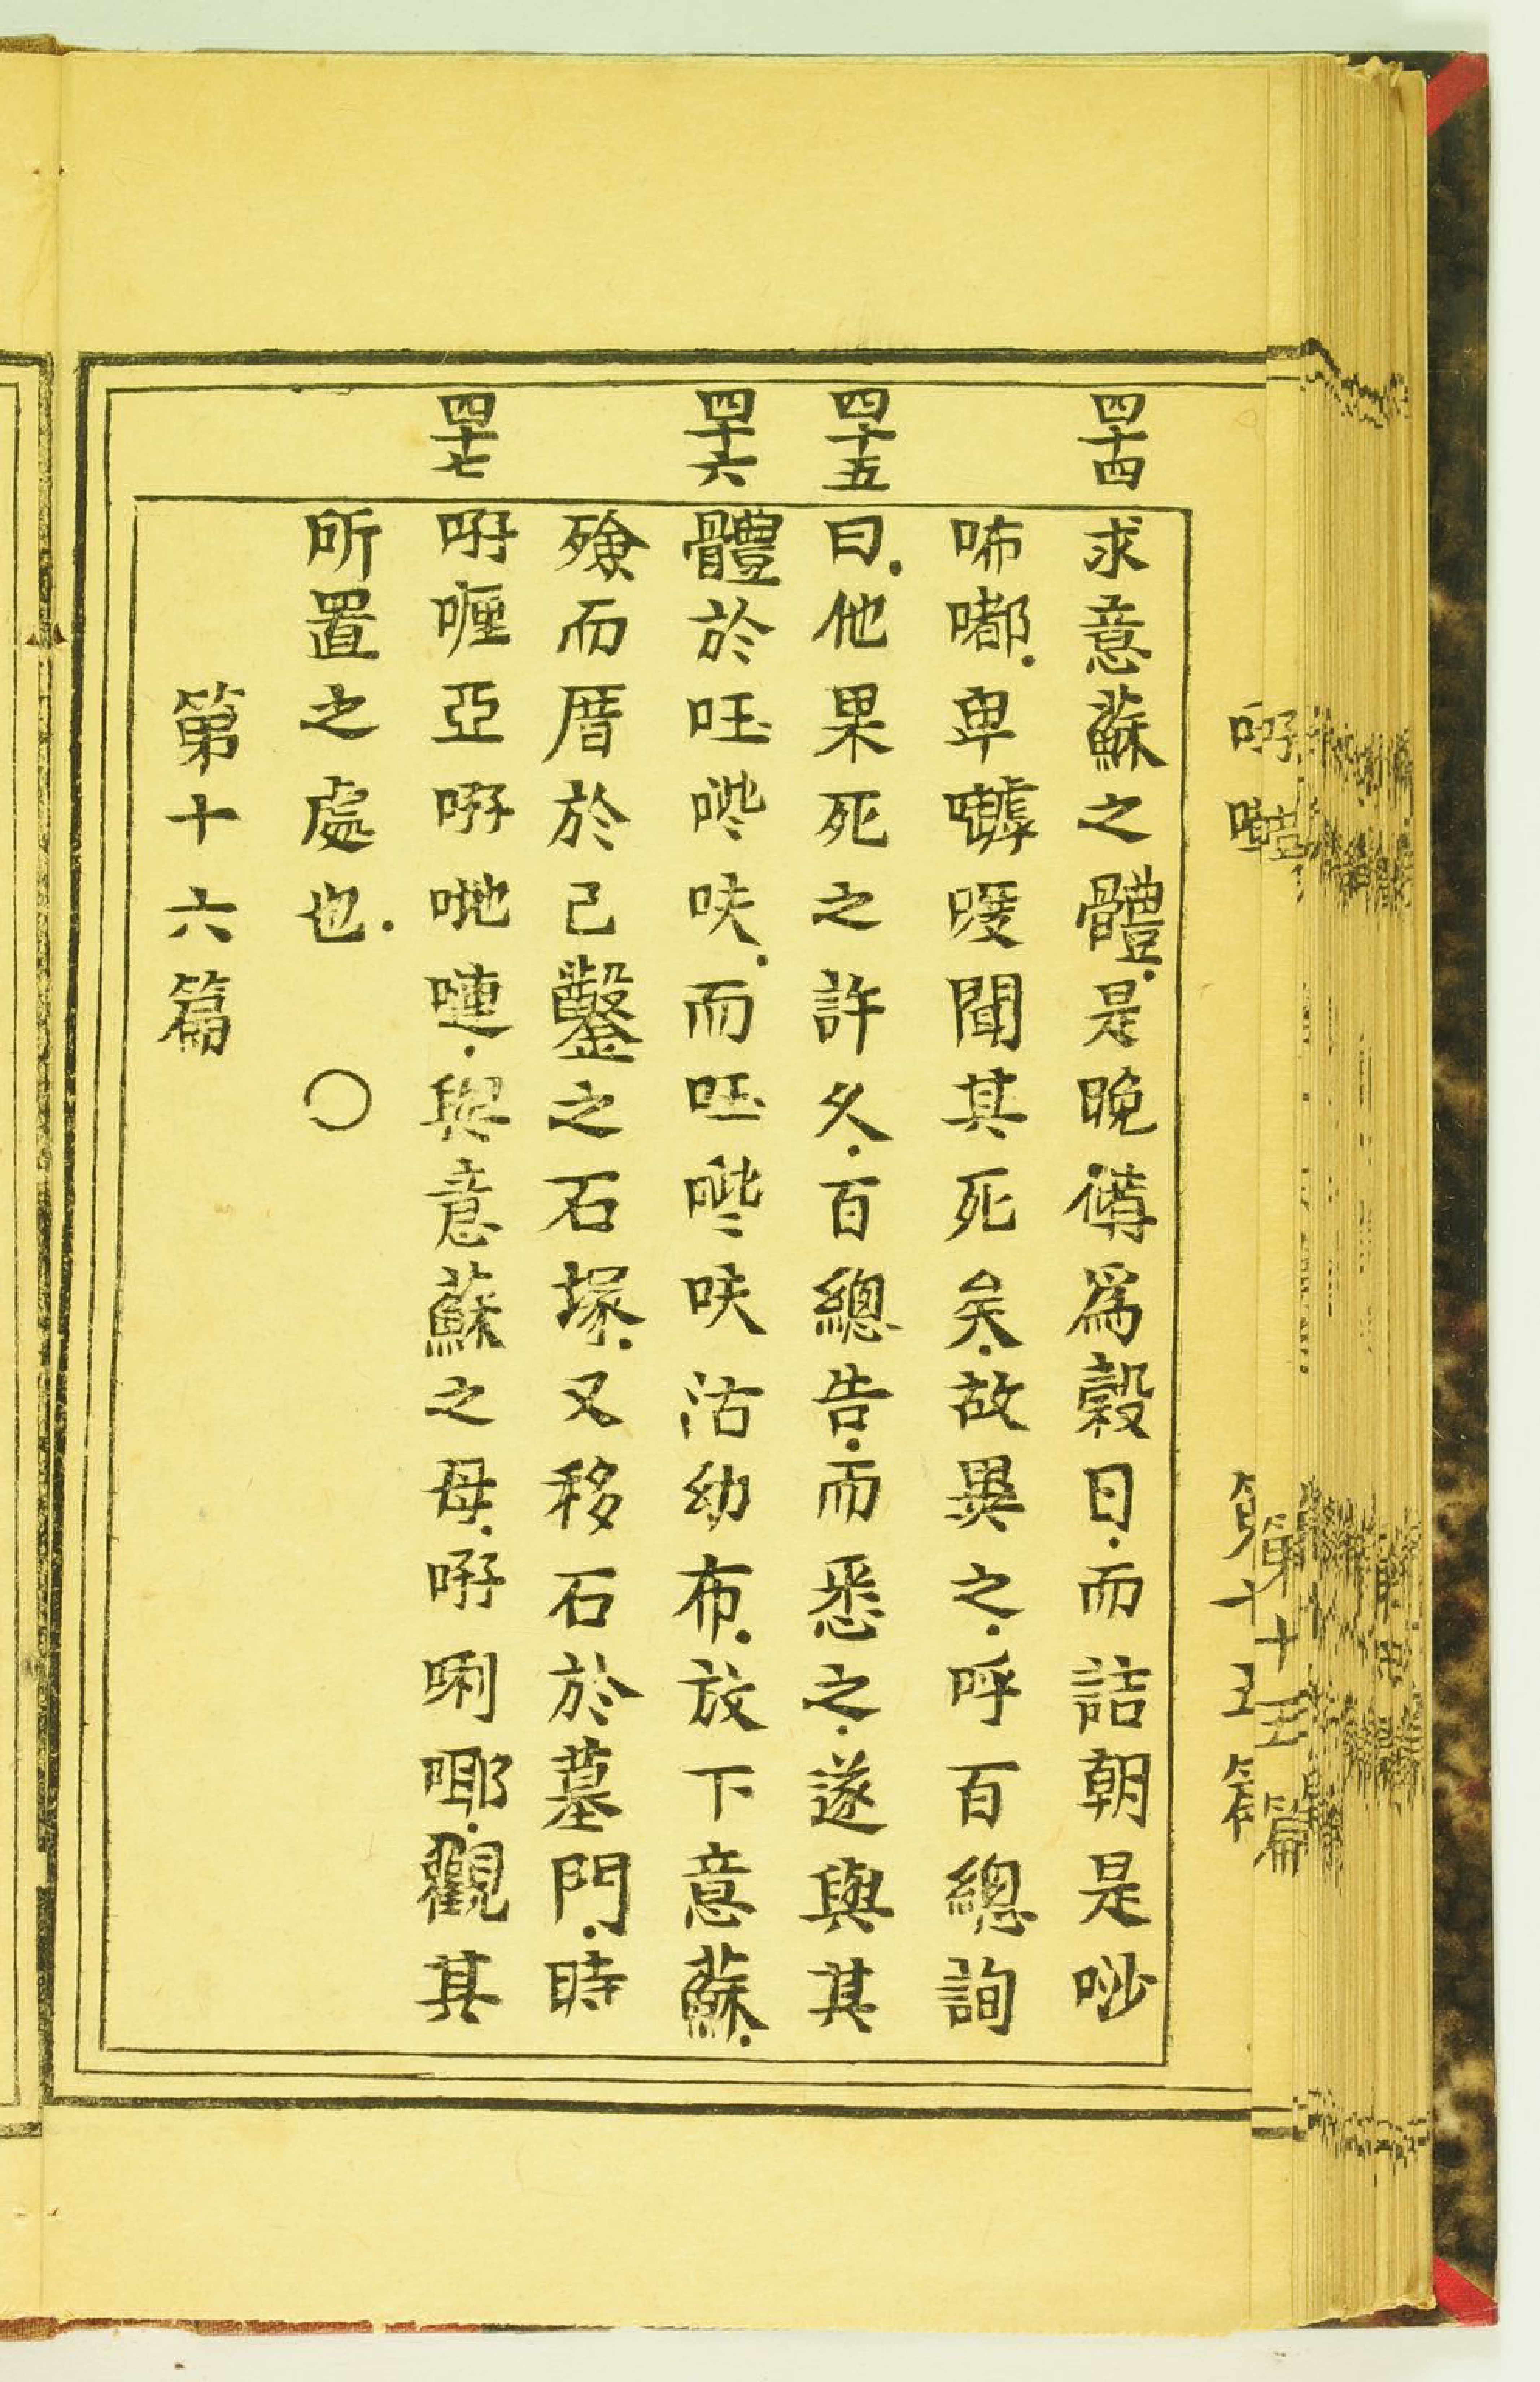 四十四
求意蘇之體.是晚傅爲穀日.而詰朝是唦
咘嘟.卑嚹嗄聞其死矣.故異之.呼百總詢
四十五
曰.他果死之許久.百總告.而悉之.遂與其
四十六
體於㕵嗶呋.而㕵嗶呋沽幼布.放下意蘇.
殮而厝於己鑿之石塚.又移石於墓門.時
四十七
喱亞哋嗹.與意蘇之母.唎㖿.觀其
所置之處也. 〇
第十六篇
第十五篇